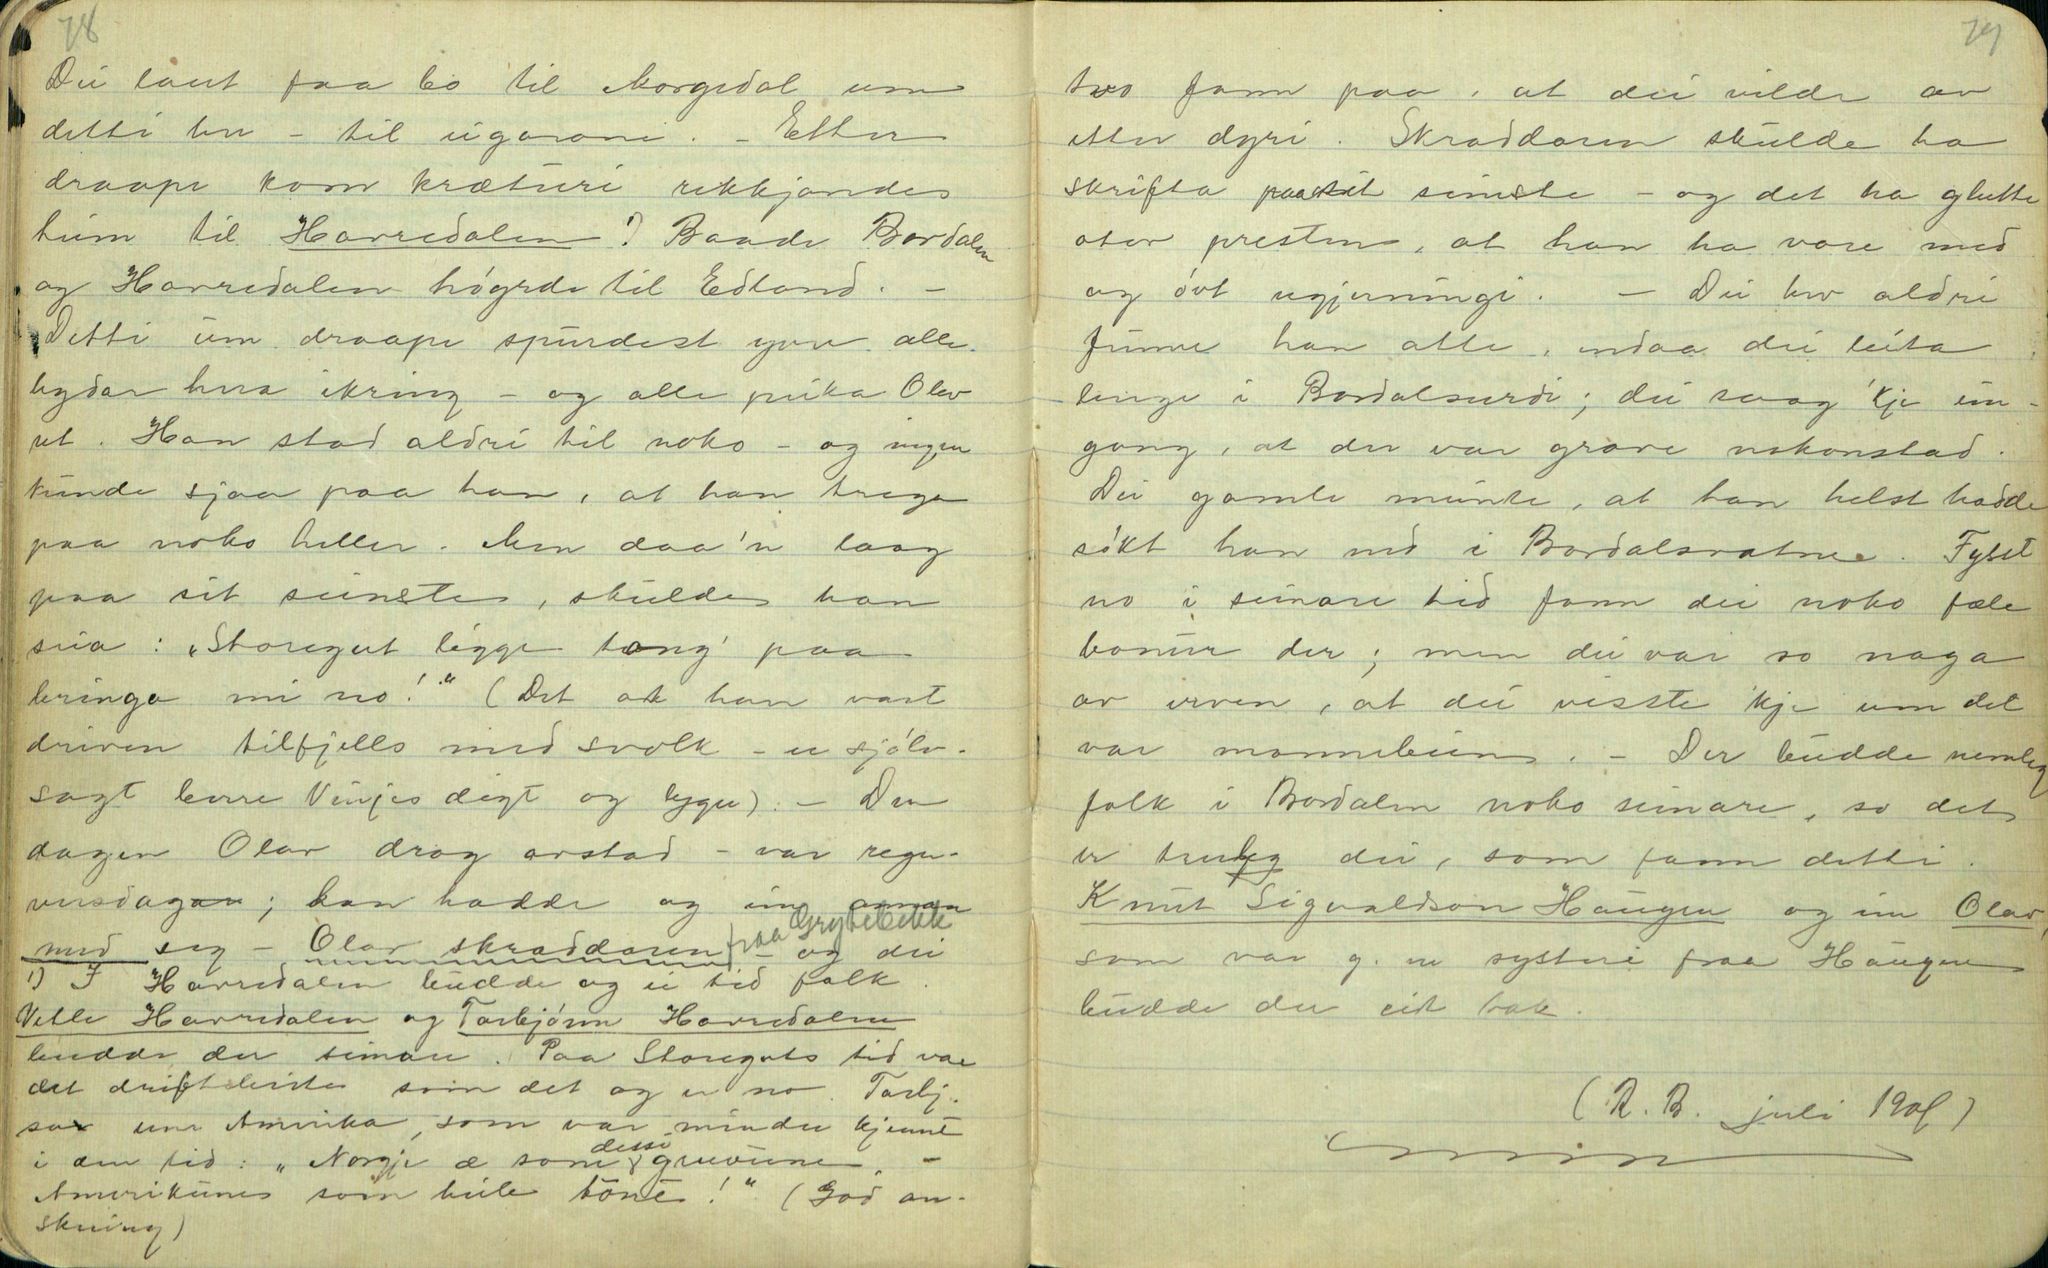 78
Dei laut faa bo til Morgedal um
detti her - til ugarane. - Etter
draape kom krætúri rekkjande
heim til Harredalen ¹) Baade Bordalen
og Harredalen högrde til Edland. -
Detti um draape spurdest yver alle
bygdar her ikring - og alle peika Olav
ut. Han stod aldri til noko - og ingen
kunde sjaa paa han, at han trega
paa noko heller. Men daa'n laag
paa sit seinste, skulde han
seia: "Storegut ligge tong' paa
bringa mi no!" (Det at han vart
driven tilfjells med svolk - er sjölv-
sagt berre Vinjes digt og lygn). - Den
dagen Olav drog avstad - var regn-
versdagen; han hadde og ein annan
med seg - Olav skraddaren fraa Grytebekk - og dei
1) I Harredalen budde og ei tid folk.
Vetle Harredalen og Torbjörn Harredalen
budde der seinare. Paa Storeguts tid var
det driftebeite som det og er no. Torbj.
sa um Amerika, som var mindre kjennt
i den tid: "Norgje æ som desse gruvune, -
Amerikunes som heile tönë!" (God an-
skuing)
79
two fann paa, at dei vilde av
etter dyri. Skraddaren skulde ha
skrifta paa sit seinste - og det ha glutte
otor presten, at han ha vore med
og óvt ugjerningi. - Dei hev aldri
funne han atte, endaa dei leita
lenge i Bordalsurdi; dei saag 'kje ein-
gong, at der var grave nokonstad.
Dei gamle meinte, at han helst hadde
sökt han ned i Bordalsvatne. Fysst
no i seinare tid fann dei noko fæle
bonur der; men dei var so naga
av erven, at dei visste 'kje um det
var mannebein. - Der budde nemleg
folk i Bordalen noko seinare, so det
er truleg dei, som fann detti.
Knut Sigvaldson Haugen og ein Olav,
som var g. m systeri fraa Haugen
budde der eit bak.
(R. B. juli 1909)